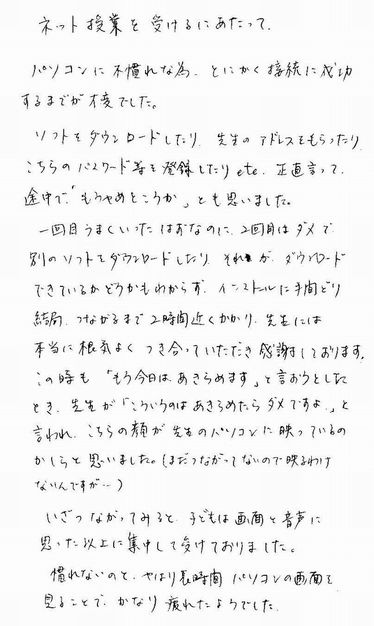 ネット授業を受けるにあたって、
パソコンに不慣れな為、とにかく接続に成功
するまでが大変でした。
ソフトをダウンロードしたり、先生のアドレスをもらったり、
こちらのパスワード等を登録したりetc. 正直言って、
途中で「もうやめとこうか」とも思いました。
一回目うまくいったはずなのに、2回目はダメで
別のソフトをダウンロードしたり、それが、ダウンロード
できているかどうかもわからず、インストールに手間どり
結局、つながるまで2時間近くかかり、先生には
本当に根気よくつき合っていただき感謝しております。
この時も「もう今日はあきらめます」と言おうとした
とき、先生が「こういうのはあきらめたらダメですよ。」と
言われ、こちらの顔が先生のパソコンに映っているの
かしらと思いました。(まだつながってないので映るわけ
ないんですが…)
いざつながってみると、子どもは画面と音声に
思った以上に集中して受けておりました。
慣れないのと、やはり長時間パソコンの画面を
見ることで、かなり疲れたようでした。